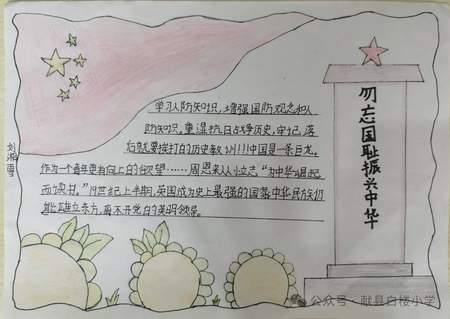 学习人防知识，增强国防观念和人
防知识，重温抗日战争历史，牢记，落
后就要挨打的历史教训!!!中国是一条巨龙，
作为一个青年更有向上的欲望……周恩来从小立志"为中华崛起
而读书，"19世纪上半期，英国成为史上最强的国落中华民族仍
能雄立东方，离不开党的英明领导。
勿忘国耻振兴中华
刘湘雪
公众号·献县白楼小学